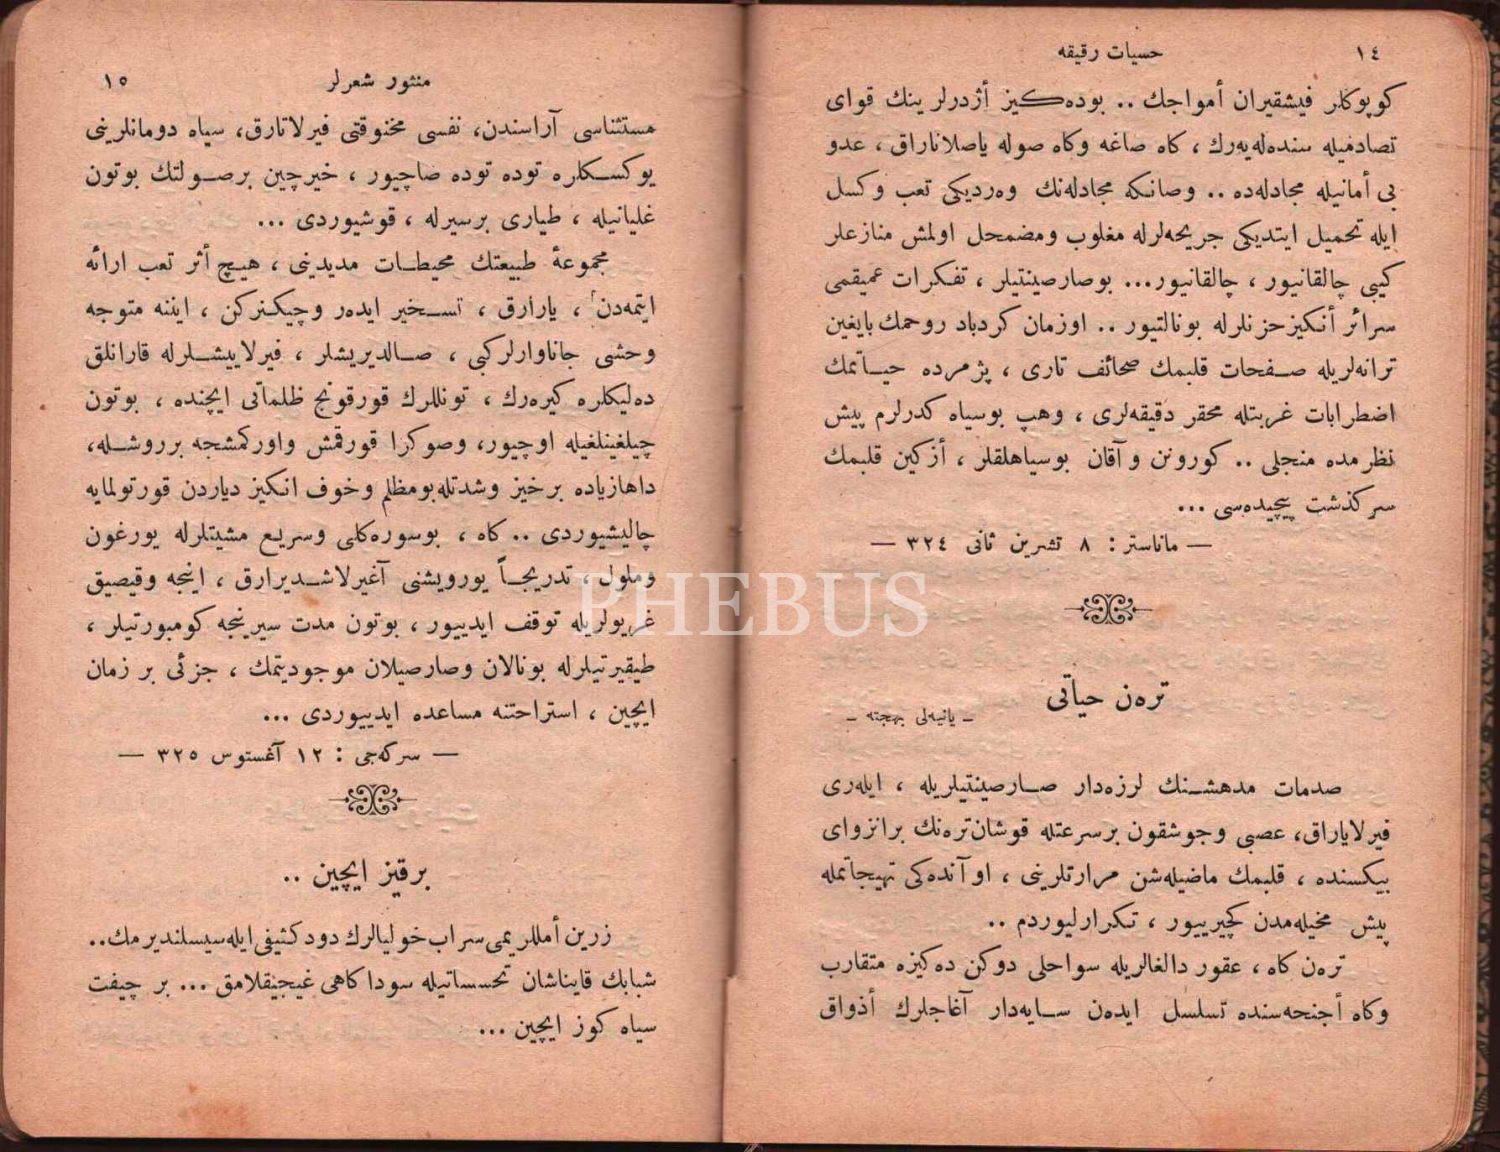 ١٤
حسيات رقيقه
كوپوكلر فيشقيران أمواجك .. بوده‌كيز أژدرلر ينك قواى
تصادميله سنده‌له‌يه‌رك ، كاه صاغه وكاه صوله ياصلاناراق ، عدو
بى أمانيله مجادله‌ده .. وصانكه مجادله‌نك وه‌رديكى تعب وكسل
ايله تحميل ايتديكى جريحه‌لرله مغلوب ومضمحل اولمش منازعلر
كيبى چالقانيور ، چالقانيور... بوصارصينتيلر ، تفكرات عميقمى
سرائر أنكيزحزنلرله بونالتيور .. اوزمان كردباد روحمك بايغين
ترانه‌لريله صفحات قلبمك صحائف تارى ، پژمرده حياتمك
اضطرابات غربتله محقر دقيقه‌لرى ، وهپ بوسياه كدرلرم پيش
نظرمده منجلى .. كورونن وآقان بوسياهلقلر ، أزكين قلبمك
سركذشت پيچيده‌سى ...
— ماناستر : ٨ تشرين ثانى ٣٢٤ —
تره‌ن حياتى
ـ يانيه‌لى بهجته ـ
صدمات مدهشنك لرزه‌دار صارصينتيلريله ، ايله‌رى
فيرلاياراق، عصبى وجوشقون برسرعتله قوشان‌تره‌نك برانزواى
بيكسنده ، قلبمك ماضيله‌شن مرارتلرينى ، اوآنده‌كى تهيجاتمله
پيش مخيله‌مدن كچيرييور ، تكرارليوردم ..
تره‌ن كاه ، عقور دالغالريله سواحلى دوكن ده‌كيزه متقارب
وكاه أجنحه‌سنده تسلسل ايده‌ن سايه‌دار آغاجلرك أذواق
منثور شعرلر
١٥
مستثناسى آراسندن، نفسى مخنوقتى فيرلاتارق، سياه دومانلرينى
يوكسكلره توده توده صاچيور ، خيرچين برصولتك بوتون
غليانيله ، طيارى برسيرله ، قوشيوردى ...
مجموعۀ طبيعتك محيطات مديدينى ، هيچ أثر تعب ارائه
ايتمه‌دن ، يارارق ، تسخير ايده‌ر وچيكنركن ، ايننه متوجه
وحشى جاناوارلركبى ، صالديريشلر ، فيرلاييشلرله قارانلق
ده‌ليكلره كيره‌رك ، تونللرك قورقونج ظلماتى ايچنده ، بوتون
چيلغينلغيله اوچيور، وصوكرا قورقمش واوركمشجه برروشله،
داهازياده برخيز وشدتله‌بومظلم وخوف انكيز دياردن قورتولمايه
چاليشيوردى .. كاه ، بوسوره‌كلى وسريع مشيتلرله يورغون
وملول ، تدريجاً يورويشنى آغيرلاشديرارق ، اينجه وقيصيق
غريولريله توقف ايدييور ، بوتون مدت سيرينجه كومبورتيلر ،
طيقيرتيلرله بونالان وصارصيلان موجوديتمك ، جزئى بر زمان
ايچين ، استراحتنه مساعده ايدييوردى ...
— سركه‌جى : ١٢ آغستوس ٣٢٥ —
برقيز ايچين ..
زرين أمللريمى‌سراب خوليالرك دودكثيفى ايله‌سيسلنديرمك..
شبابك قايناشان تحسساتيله سوداكاهى غيجيقلامق ... بر چيفت
سياه كوز ايچين ...
PHEBUS